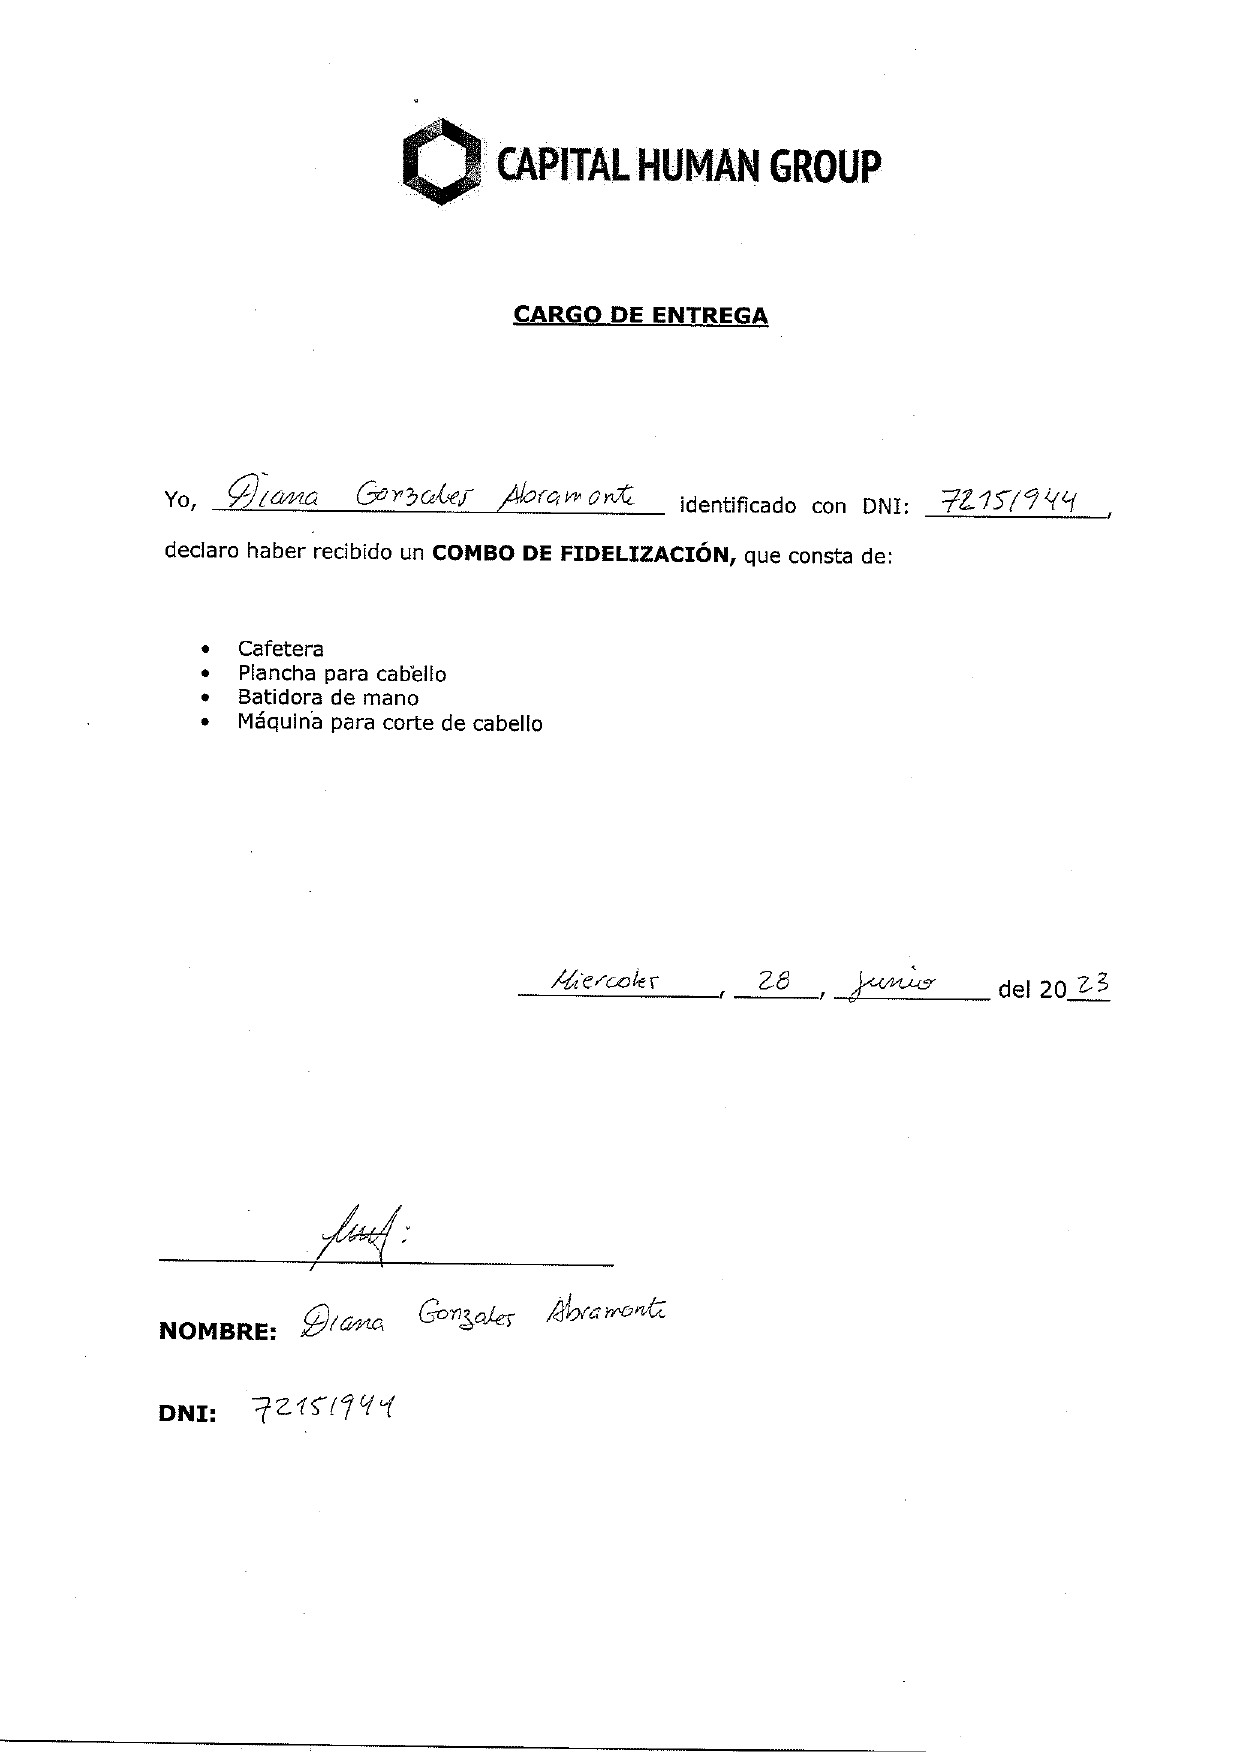 CAPITAL HUMAN GROUP
CARGO DE ENTREGA
Yo, Diana Gonzales Abramonte identificado con DNI: 72151944,
declaro haber recibido un COMBO DE FIDELIZACIÓN, que consta de:
• Cafetera
• Plancha para cabello
• Batidora de mano
• Máquina para corte de cabello
Miercoles, 28, junio del 2023
NOMBRE: Diana Gonzales Abramonte
DNI: 72151944